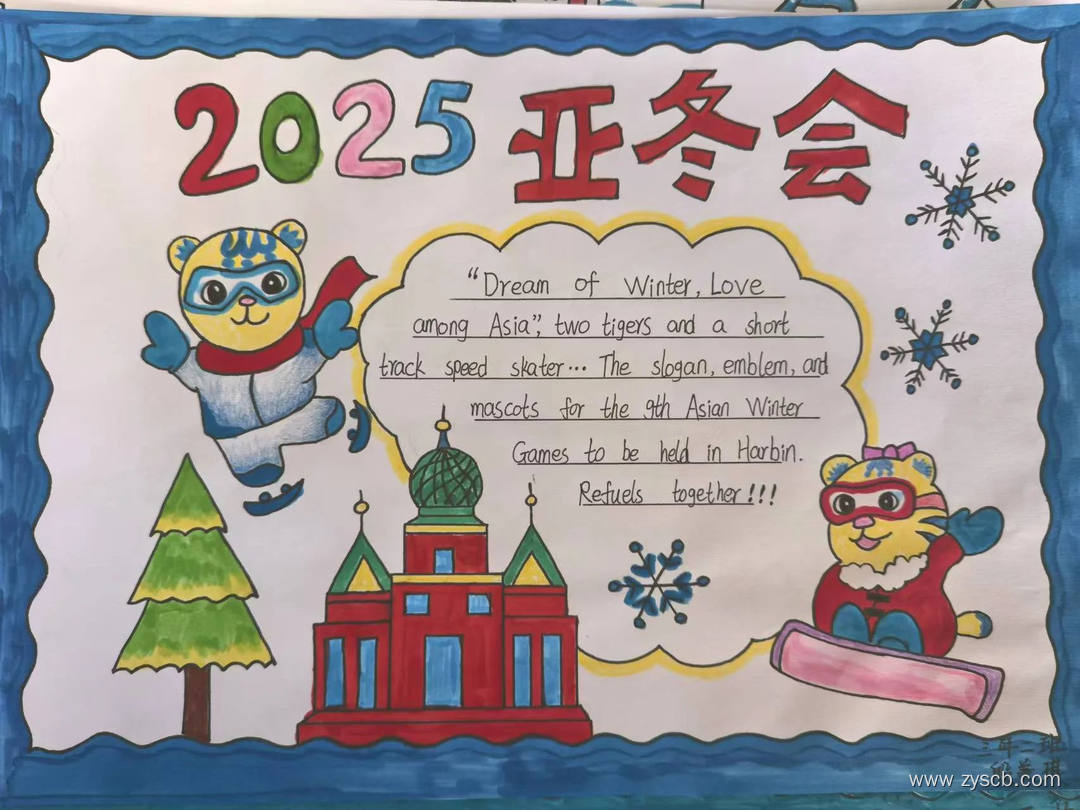 2025 亚冬会
"Dream of Winter, Love
among Asia", two tigers and a short
track speed skater... The slogan, emblem, and
mascots for the 9th Asian Winter
Games to be held in Harbin.
Refuels together!!!
三年二班
www.zyscb.com